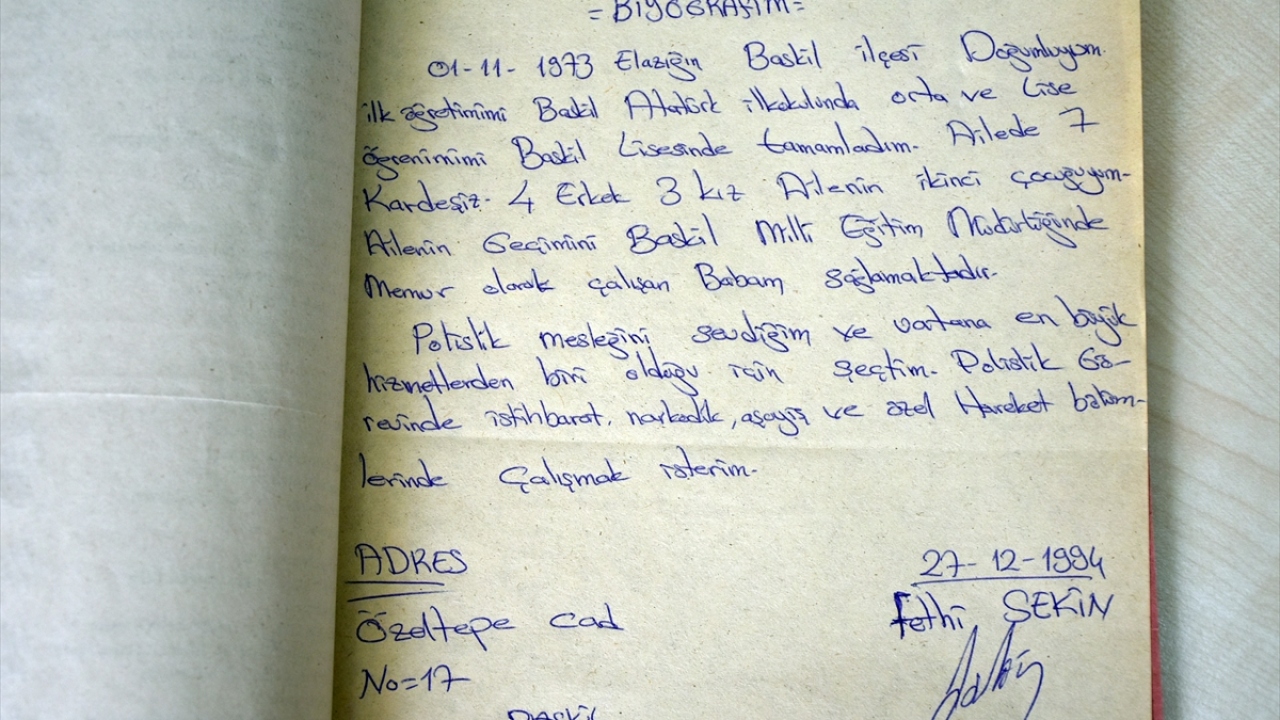 = BİYOGRAFİM =
01-11-1973 Elazığın Baskil ilçesi Doğumluyum.
ilk öğretimimi Baskil Atatürk ilkokulunda orta ve Lise
öğrenimimi Baskil Lisesinde tamamladım. Ailede 7
Kardeşiz. 4 Erkek 3 kız Ailenin ikinci çocuğuyum.
Ailenin Geçimini Baskil Milli Eğitim Müdürlüğünde
Memur olarak çalışan Babam sağlamaktadır.
Polislik mesleğini sevdiğim ve vatana en büyük
hizmetlerden biri olduğu için seçtim. Polislik Gö-
revinde istihbarat, narkotik, asayiş ve özel Hareket bölüm-
lerinde Çalışmak isterim.
ADRES
Özeltepe Cad
No=17
BASKİL
27-12-1994
Fethi SEKİN